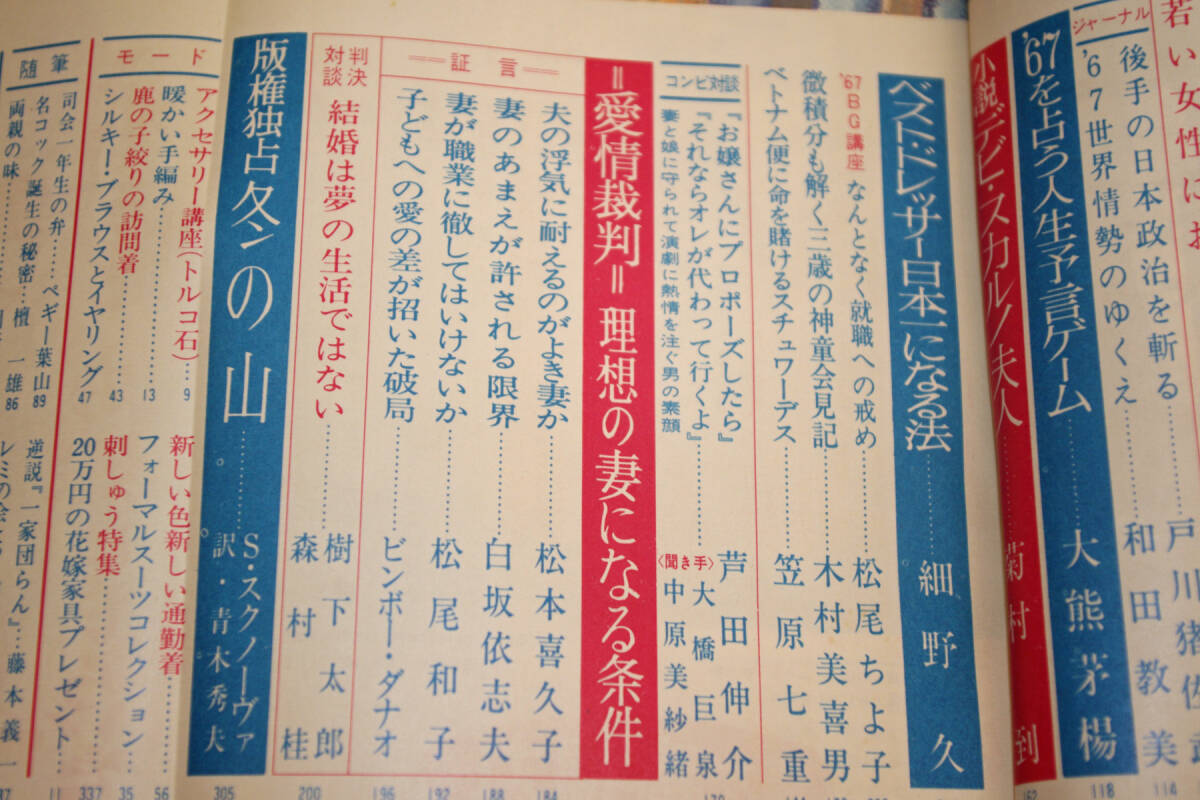 若い女性に
ジャーナル
後手の日本政治を斬る
戸川猪佐
'67世界情勢のゆくえ
和田教美
114
'67を占う人生予言ゲーム
大熊茅楊
118
小説デビ・スカルノ夫人
菊村到
162
ベスト・ドレッサー日本一になる法
細野久
'67BG講座
なんとなく就職への戒め
松尾ちよ子
微積分も解く三歳の神童会見記
木村美喜男
ベトナム便に命を賭けるスチュワーデス
笠原七重
コンビ対談
『お嬢さんにプロポーズしたら』
『それならオレが代わって行くよ』
妻と娘に守られて演劇に熱情を注ぐ男の素顔
芦田伸介
〈聞き手〉
大橋巨泉
中原美紗緒
170
=愛情裁判= 理想の妻になる条件
証言
夫の浮気に耐えるのがよき妻か
松本喜久子
184
妻のあまえが許される限界
白坂依志夫
188
妻が職業に徹してはいけないか
松尾和子
192
子どもへの愛の差が招いた破局
ビンボー・ダナオ
196
判決対談
結婚は夢の生活ではない
樹下太郎
森村桂
200
版権独占 タンの山
S・スクノーヴァ
訳・青木秀夫
305
モード
アクセサリー講座(トルコ石)
9
暖かい手編み
13
鹿の子絞りの訪問着
43
シルキー・ブラウスとイヤリング
47
新しい色新しい通勤着
56
フォーマルスーツコレクション
35
刺しゅう特集
337
20万円の花嫁家具プレゼント
11
随筆
司会一年生の弁
ペギー葉山
89
名コック誕生の秘密
檀一雄
86
両親の味
逆説『一家団らん』
藤本義一